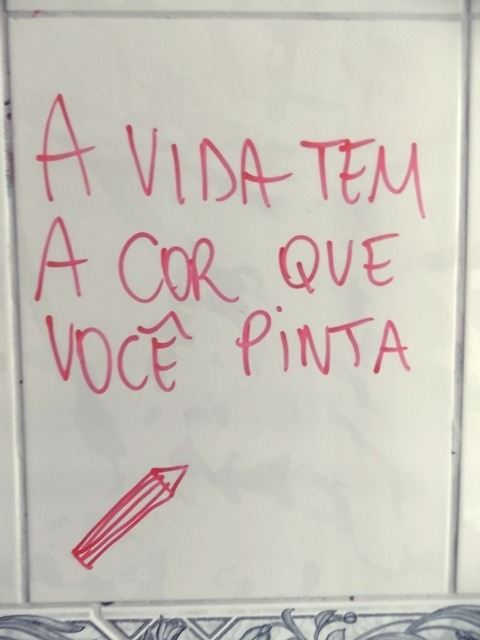 A VIDA TEM
A COR QUE
VOCÊ PiNTA